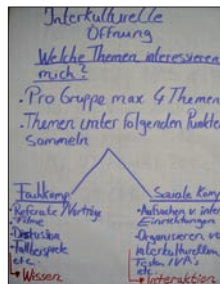 Interkulturelle
Öffnung
Welche Themen interessieren
mich?
• Pro Gruppe max 4 Themen
• Themen unter folgenden Punkten
sammeln
Fachkomp
• Referate/Vorträge
• Filme
• Diskussion
• Fallbeispiele
etc.
Wissen
Soziale Komp
• Aufsuchen v. inter
Einrichtungen
• Organisieren vo
interkulturellen
etc.
Interaktion